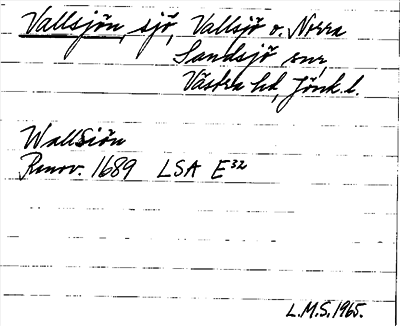 Vallsjön, sjö, Vallsjö o. Norra
Sandsjö snr,
Västra hd, Jönk. l.
Wallsiön
Renov. 1689 LSA E32
L.M.S. 1965.